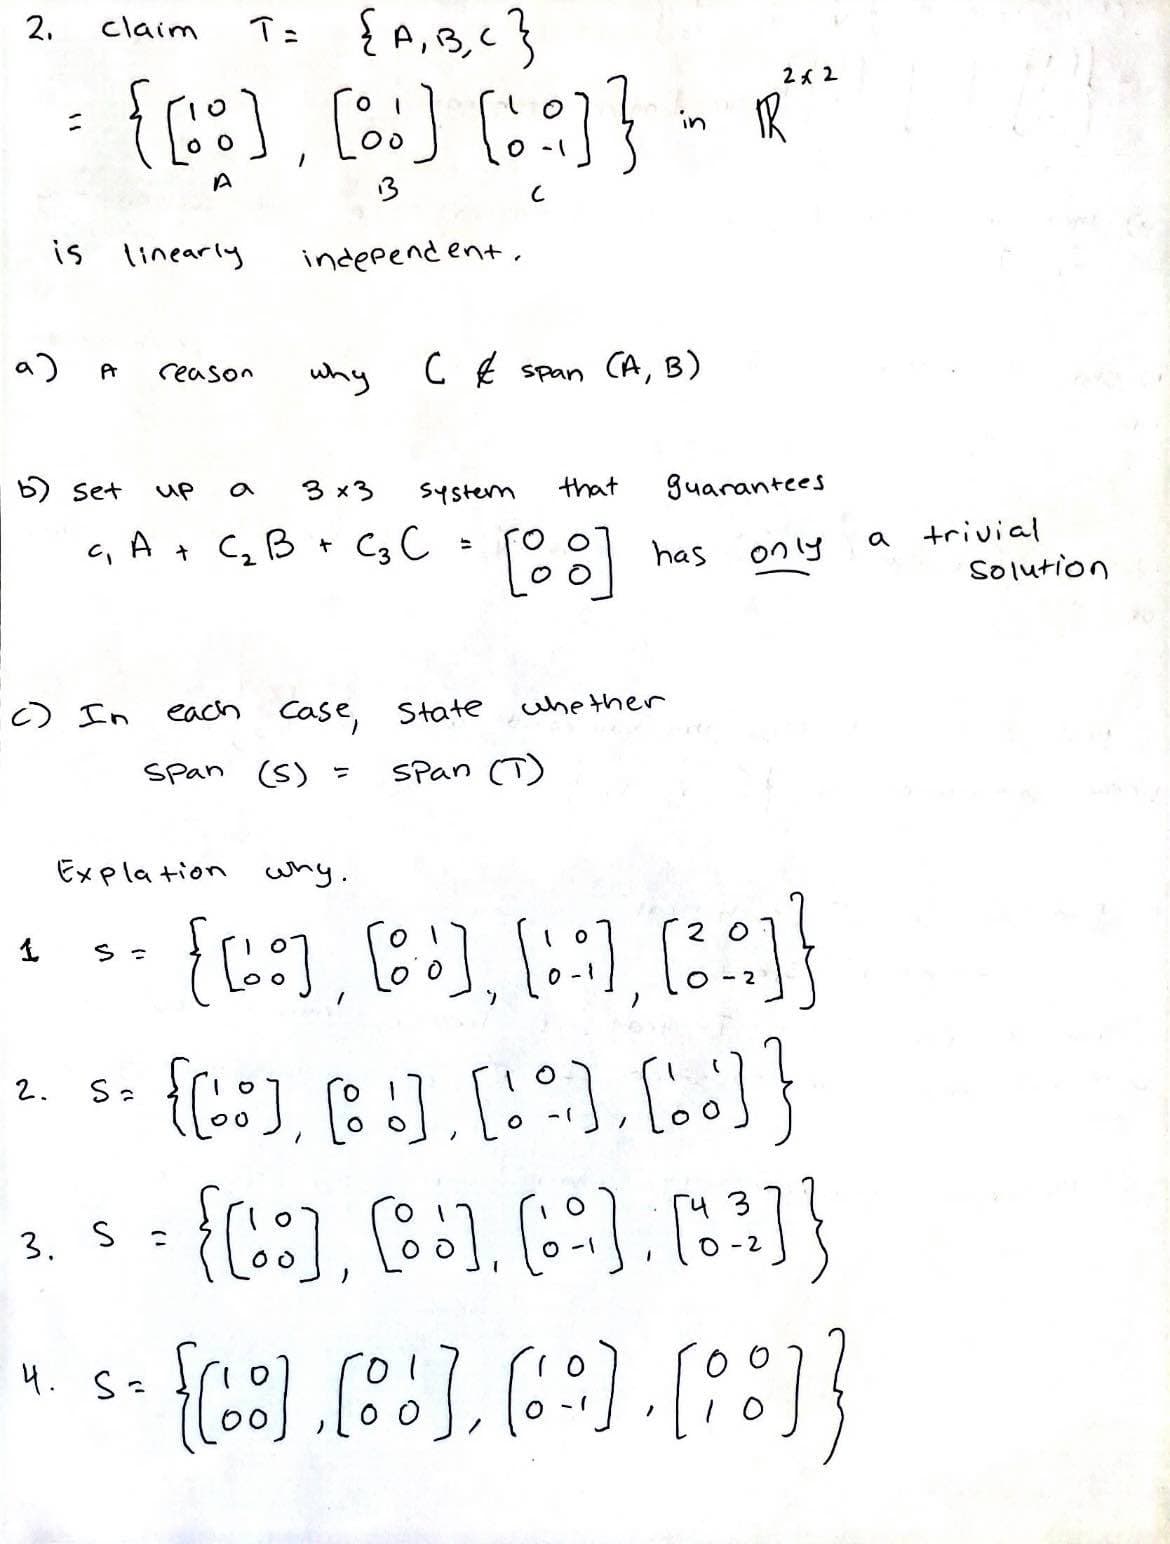 2. claim T = { A, B, C }
= { [1 0 0 0], [0 1 0 0] [1 0 0 -1] } in ℝ^2×2
A B C
is linearly independent.
a) A reason why C ∉ span (A, B)
b) Set up a 3×3 system that guarantees
c₁ A + C₂ B + C₃ C = [0 0 0 0] has only a trivial
solution
c) In each case, state whether
span (S) = span (T)
Explation why.
1 S = { [1 0 0 0], [0 1 0 0], [1 0 0 -1], [2 0 0 -2] }
2. S = { [1 0 0 0], [0 1 0 0], [1 0 0 -1], [1 1 0 0] }
3. S = { [1 0 0 0], [0 1 0 0], [1 0 0 -1], [4 3 0 -2] }
4. S = { [1 0 0 0], [0 1 0 0], [1 0 0 -1], [0 0 1 0] }